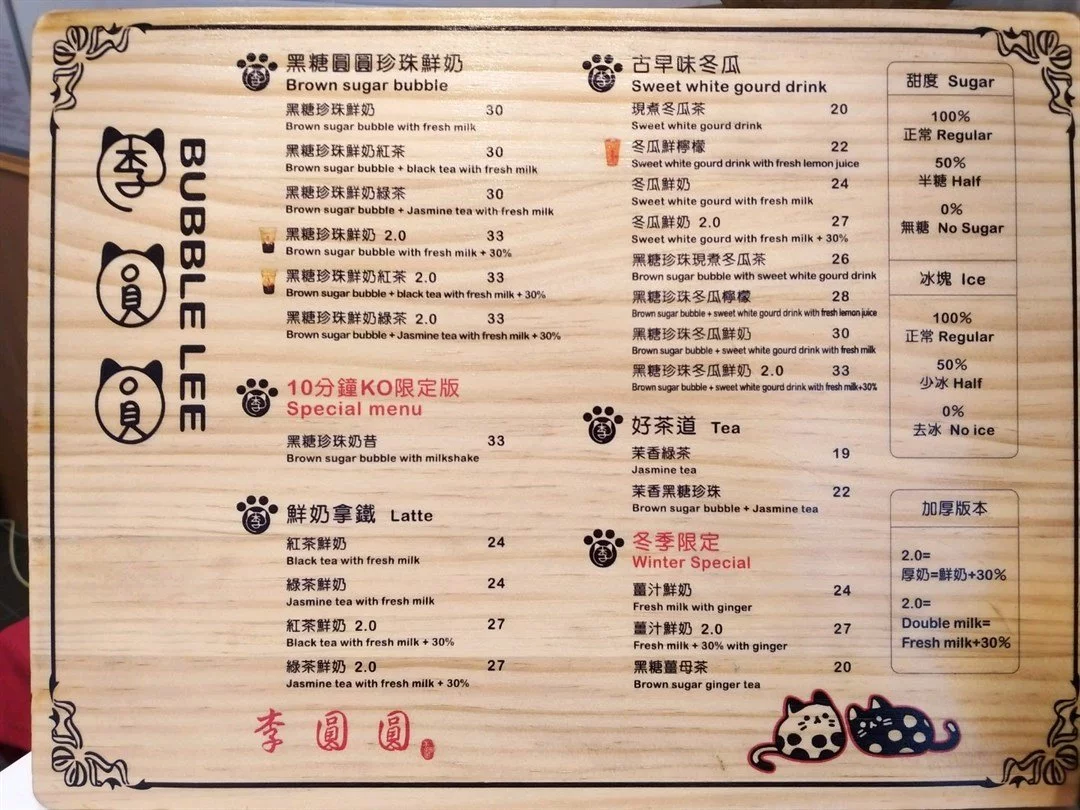 李圓圓
BUBBLE LEE
黑糖圓圓珍珠鮮奶
Brown sugar bubble
黑糖珍珠鮮奶 30
Brown sugar bubble with fresh milk
黑糖珍珠鮮奶紅茶 30
Brown sugar bubble + black tea with fresh milk
黑糖珍珠鮮奶綠茶 30
Brown sugar bubble + Jasmine tea with fresh milk
黑糖珍珠鮮奶 2.0 33
Brown sugar bubble with fresh milk + 30%
黑糖珍珠鮮奶紅茶 2.0 33
Brown sugar bubble + black tea with fresh milk + 30%
黑糖珍珠鮮奶綠茶 2.0 33
Brown sugar bubble + Jasmine tea with fresh milk + 30%
10分鐘KO限定版
Special menu
黑糖珍珠奶昔 33
Brown sugar bubble with milkshake
鮮奶拿鐵 Latte
紅茶鮮奶 24
Black tea with fresh milk
綠茶鮮奶 24
Jasmine tea with fresh milk
紅茶鮮奶 2.0 27
Black tea with fresh milk + 30%
綠茶鮮奶 2.0 27
Jasmine tea with fresh milk + 30%
李圓圓
古早味冬瓜
Sweet white gourd drink
現煮冬瓜茶 20
Sweet white gourd drink
冬瓜鮮檸檬 22
Sweet white gourd drink with fresh lemon juice
冬瓜鮮奶 24
Sweet white gourd with fresh milk
冬瓜鮮奶 2.0 27
Sweet white gourd with fresh milk + 30%
黑糖珍珠現煮冬瓜茶 26
Brown sugar bubble with sweet white gourd drink
黑糖珍珠冬瓜檸檬 28
Brown sugar bubble + sweet white gourd drink with fresh lemon juice
黑糖珍珠冬瓜鮮奶 30
Brown sugar bubble + sweet white gourd drink with fresh milk
黑糖珍珠冬瓜鮮奶 2.0 33
Brown sugar bubble + sweet white gourd drink with fresh milk+30%
好茶道 Tea
茉香綠茶 19
Jasmine tea
茉香黑糖珍珠 22
Brown sugar bubble + Jasmine tea
冬季限定
Winter Special
薑汁鮮奶 24
Fresh milk with ginger
薑汁鮮奶 2.0 27
Fresh milk + 30% with ginger
黑糖薑母茶 20
Brown sugar ginger tea
甜度 Sugar
100%
正常 Regular
50%
半糖 Half
0%
無糖 No Sugar
冰塊 Ice
100%
正常 Regular
50%
少冰 Half
0%
去冰 No ice
加厚版本
2.0=
厚奶=鮮奶+30%
2.0=
Double milk=
Fresh milk+30%